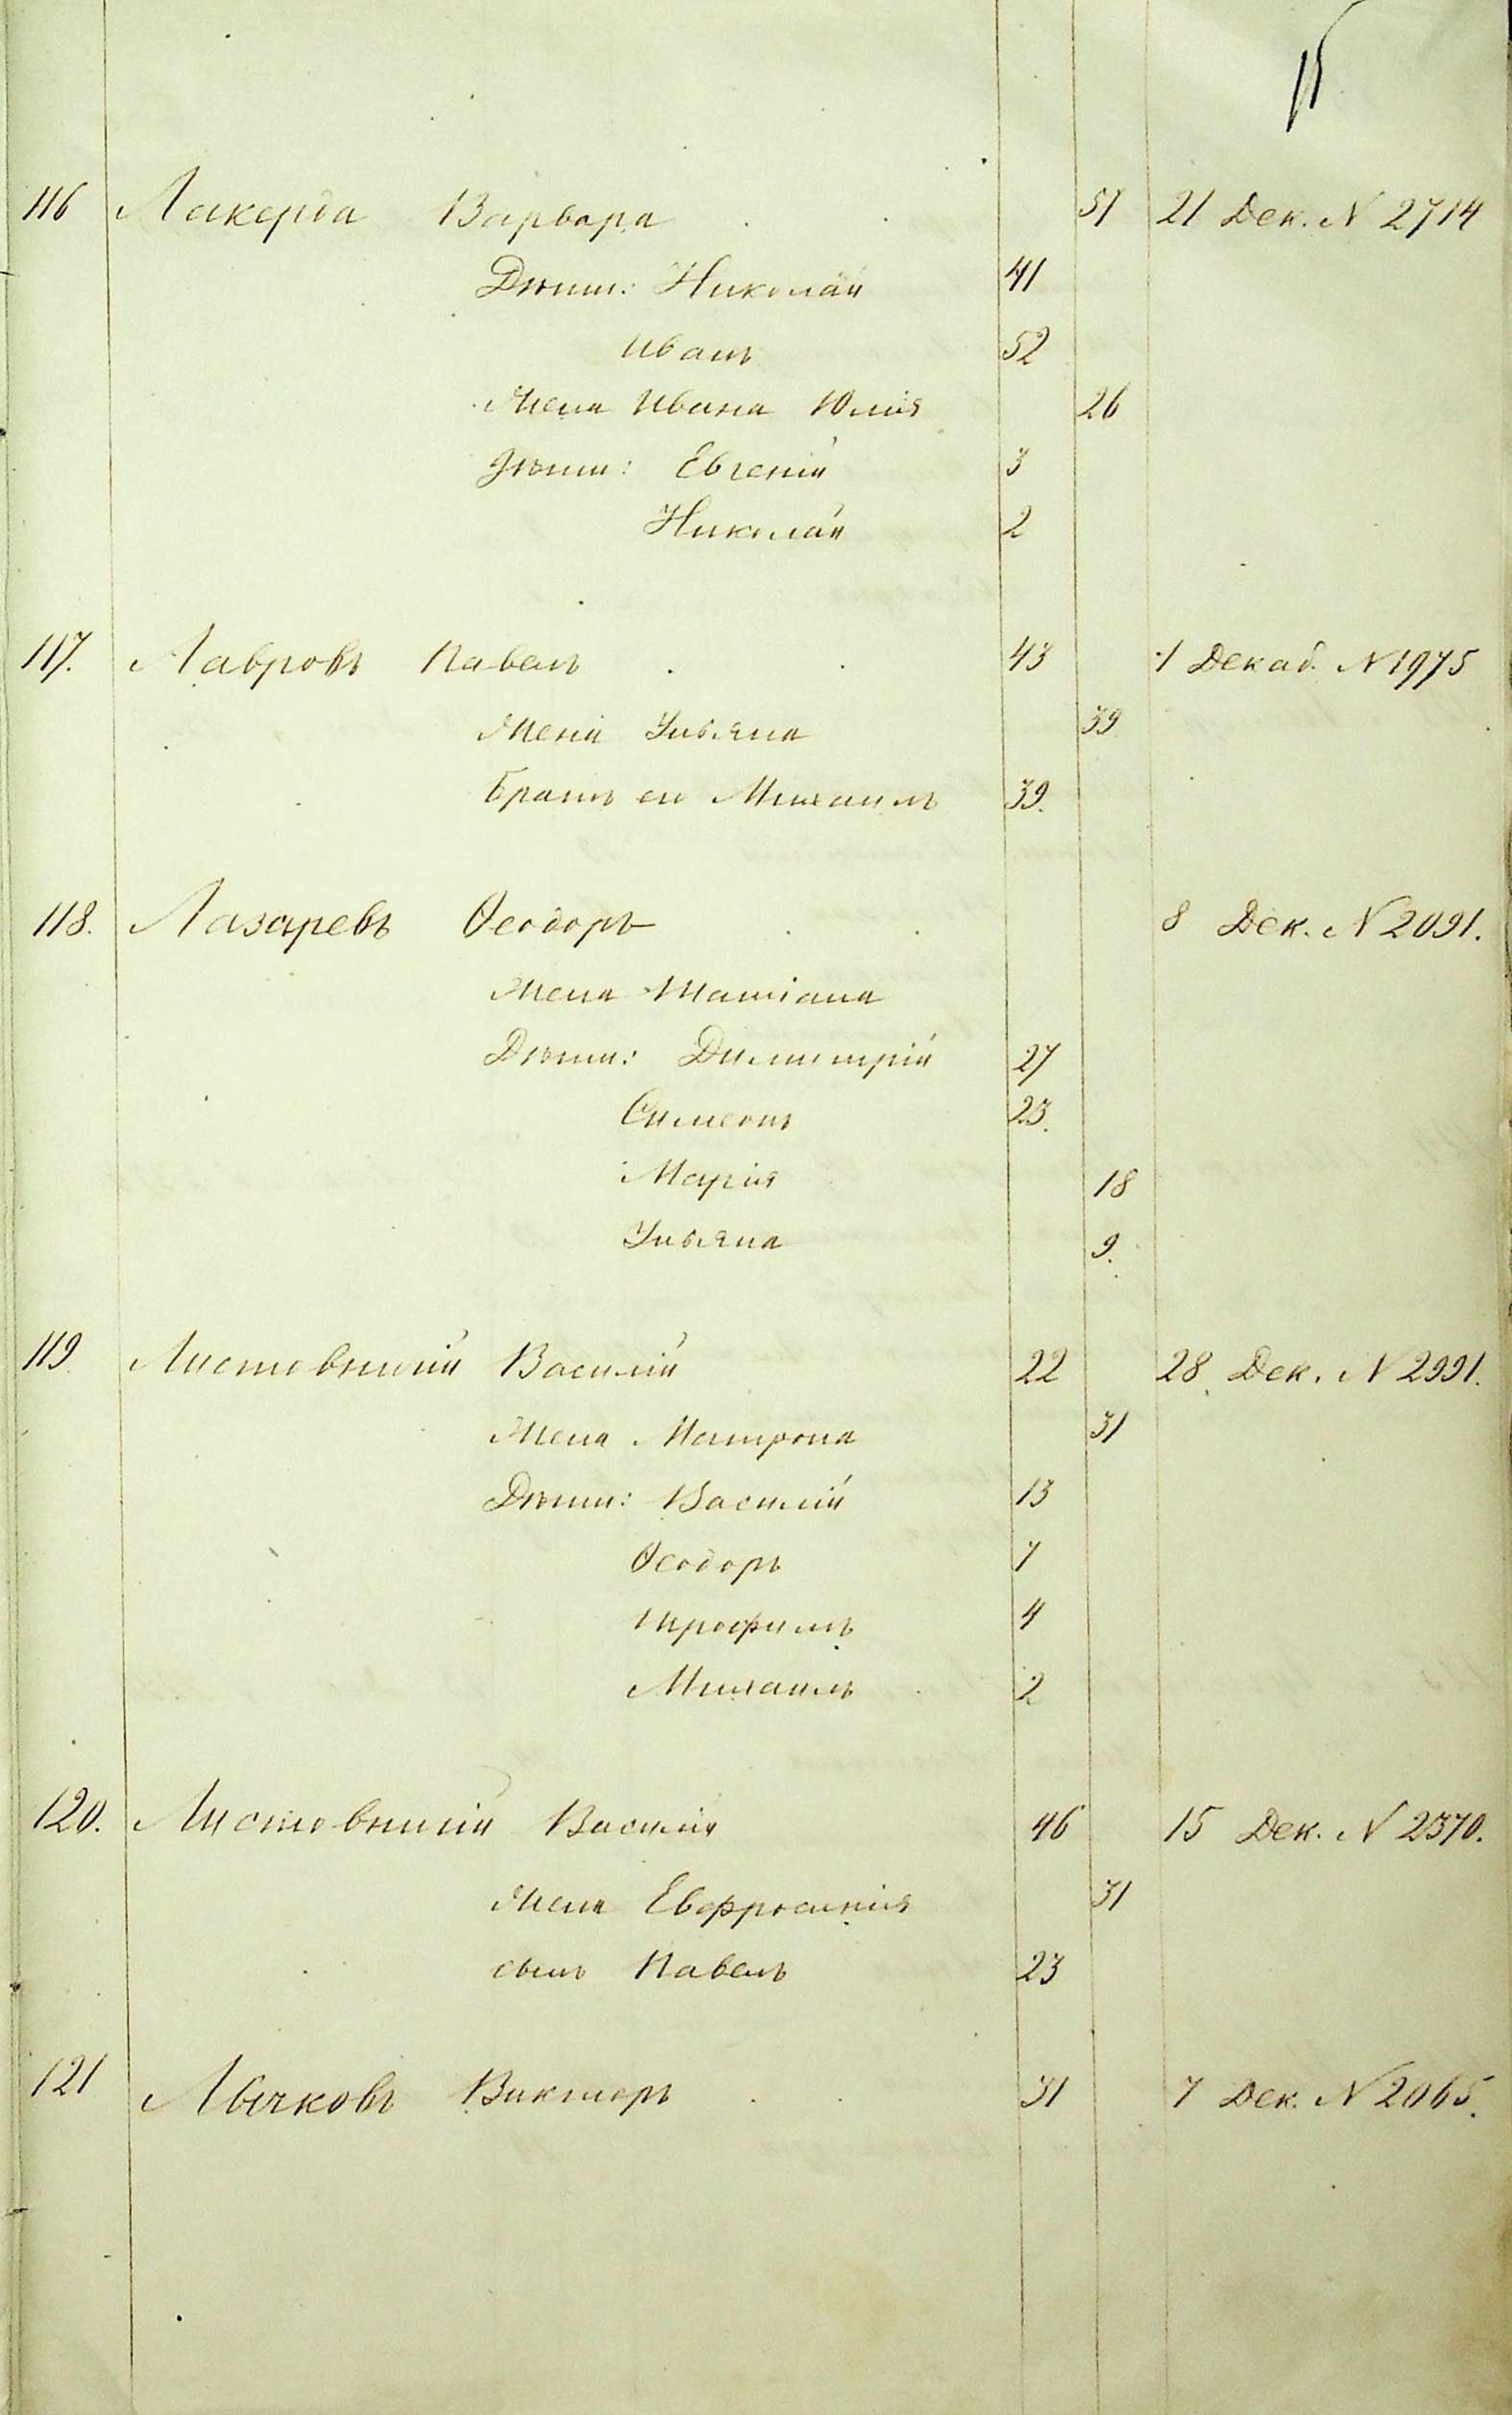 15
116 Лакерда Варвара 51 21 Дек. N 2714
Дѣти: Николай 41
Иванъ 52
Жена Ивана Юлія 26
Дѣти: Евгеній 3
Николай 2
117. Лавровъ Павелъ 43 1 Декаб. N 1975
Жена Ульяна 39
Братъ его Михаилъ 39.
118. Лазаревъ Ѳеодоръ 8 Дек. N 2091.
Жена Татіана
Дѣти: Димитрій 27
Симеонъ 23.
Марія 18
Ульяна 9.
119. Листовничій Василій 22 28 Дек. N 2991.
Жена Матрона 31
Дѣти: Василій 13
Ѳеодоръ 7
Трофимъ 4
Михаилъ 2
120. Листовничій Василій 46 15 Дек. N 2370.
Жена Евфросинія 31
сынъ Павелъ 23
121 Лычковъ Викторъ 31 7 Дек. N 2065.